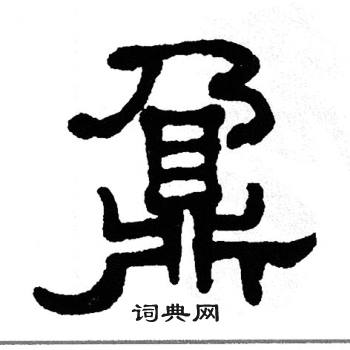 鼐
词典网